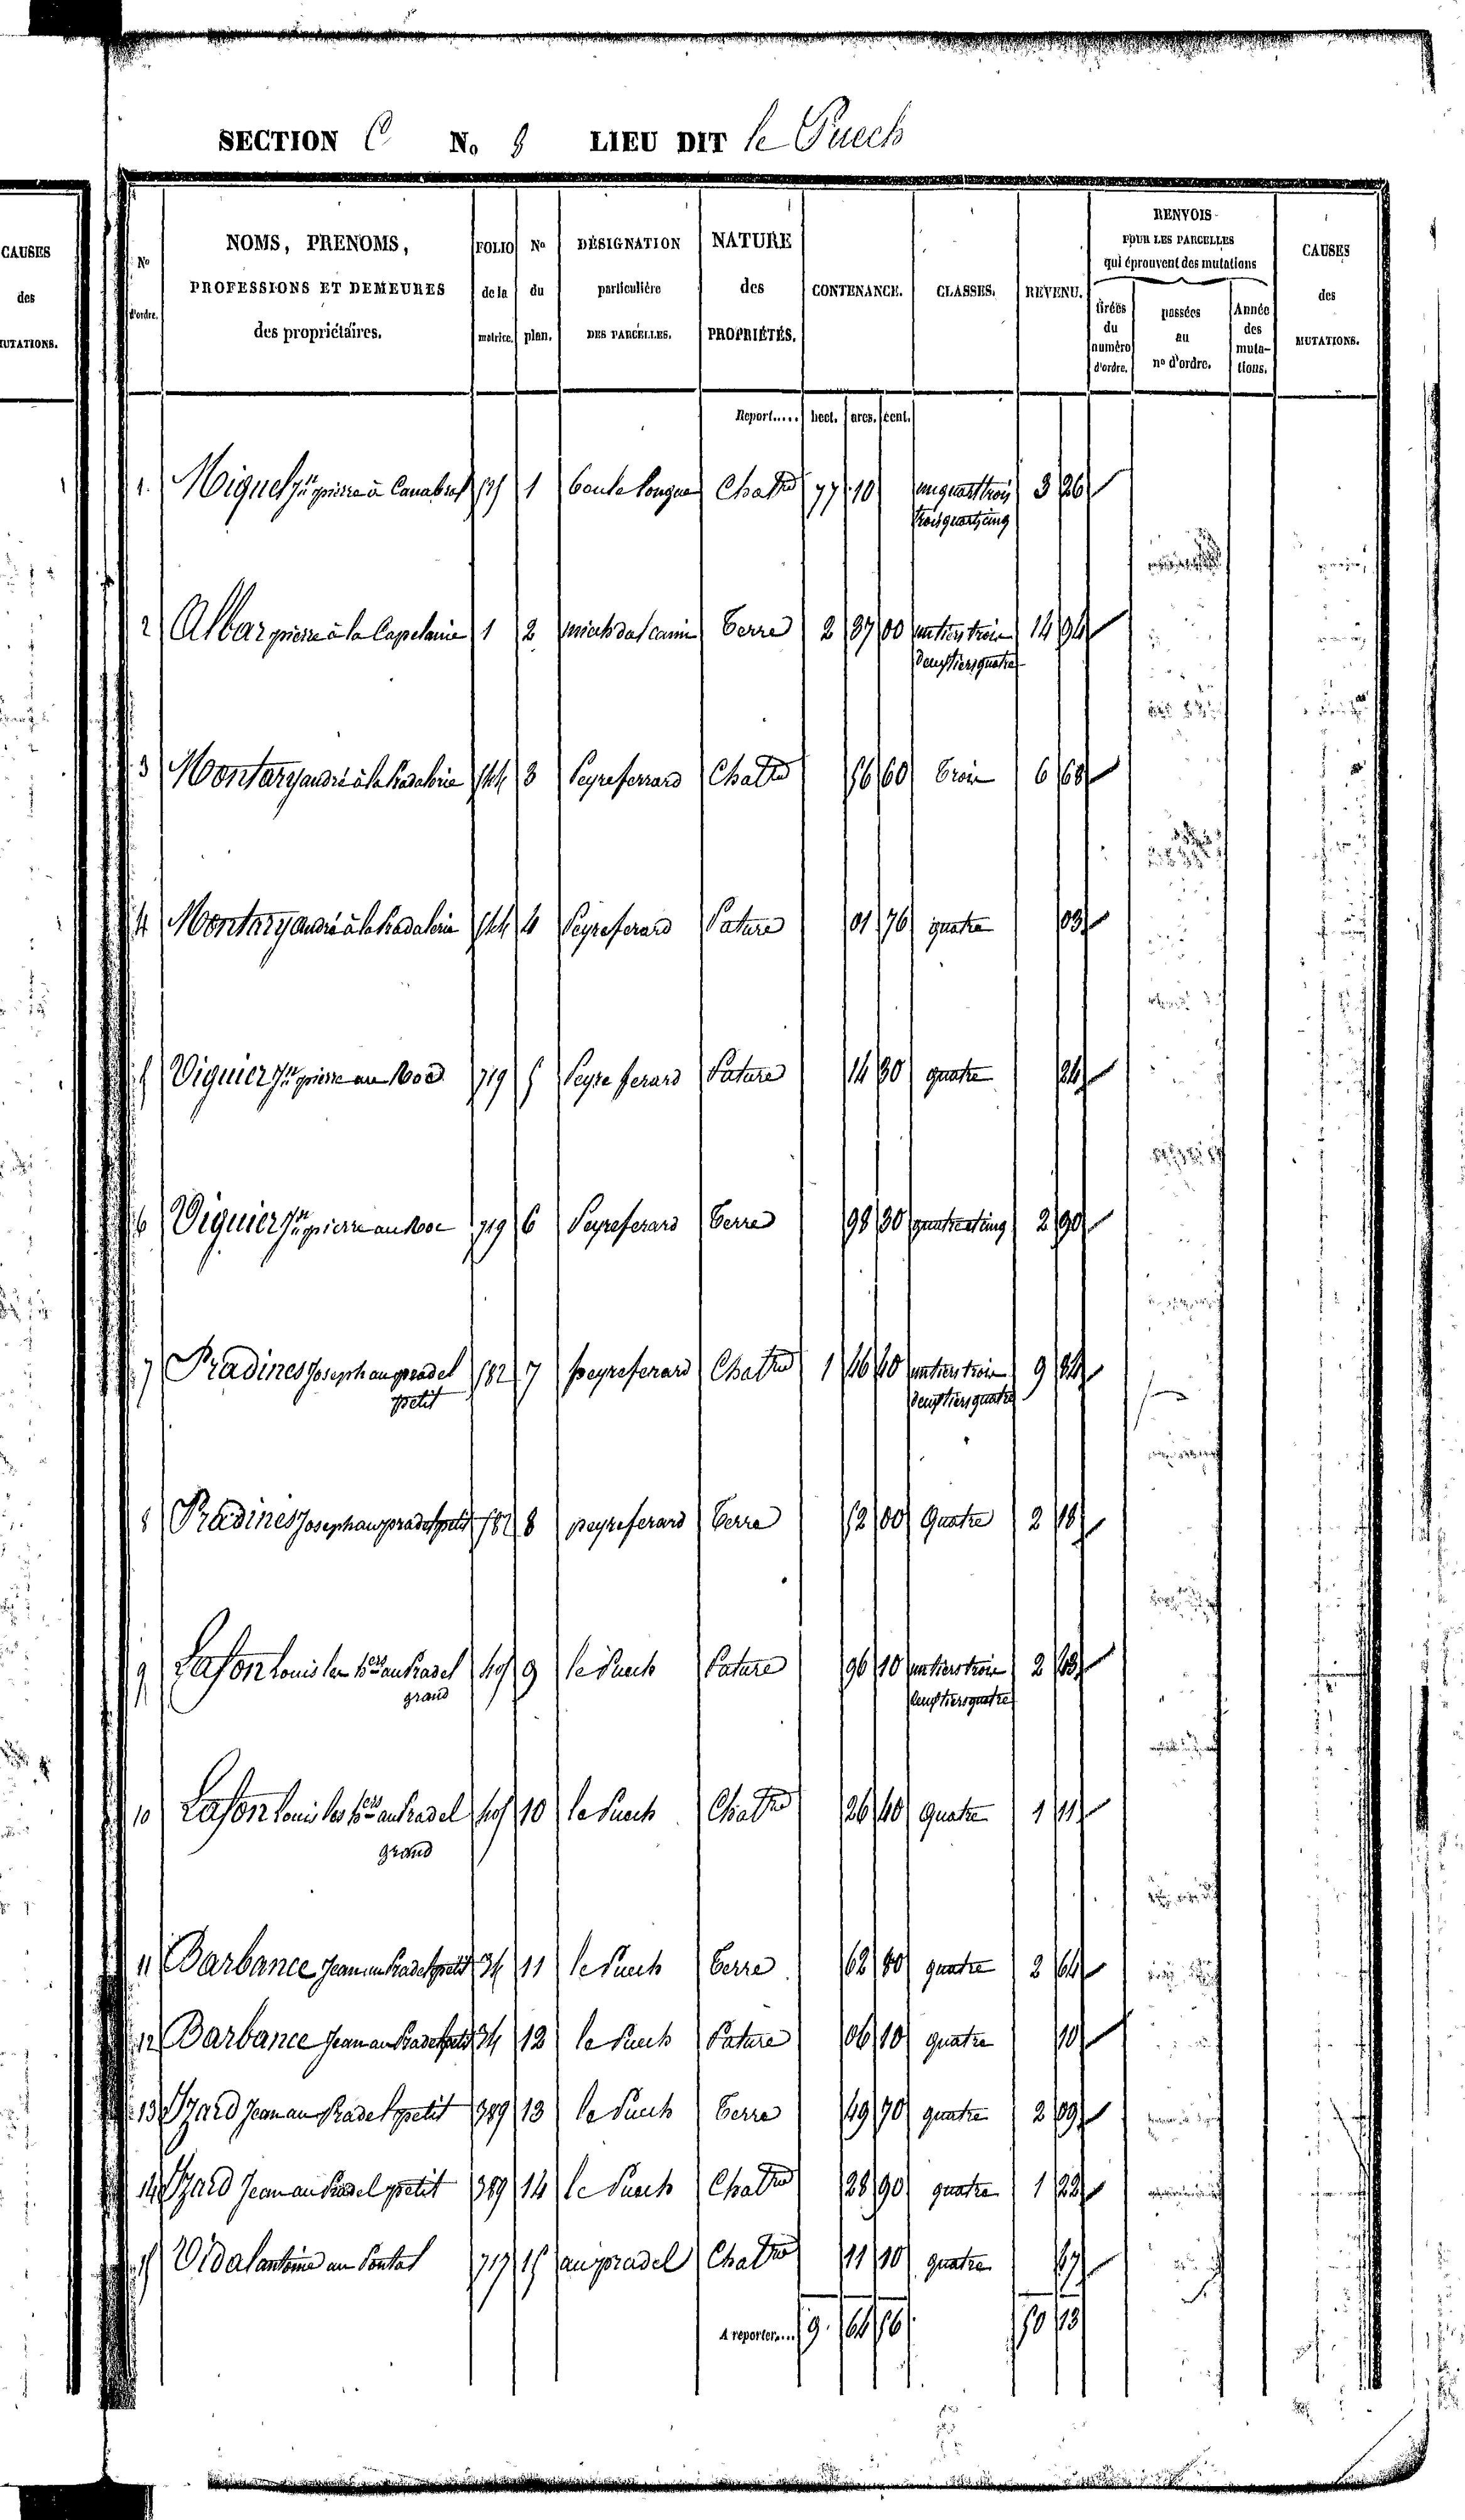 SECTION C N. 8 LIEU DIT le Puech
CAUSES
des
MUTATIONS.
No
d'ordre.
NOMS, PRENOMS,
PROFESSIONS ET DEMEURES
des propriétaires.
FOLIO
de la
matrice.
No
du
plan.
DÉSIGNATION
particulière
DES PARCELLES.
NATURE
des
PROPRIÉTÉS.
CONTENANCE.
CLASSES.
REVENU.
RENVOIS
POUR LES PARCELLES
qui éprouvent des mutations
tirées
du
numéro
d'ordre.
passées
au
no d'ordre.
Année
des
muta-
tions.
CAUSES
des
MUTATIONS.
Report..... hect. ares. cent.
1. Miquel Jn pierre à 1 Chatd 77 10 3 26
trois quart cinq
2 Albar pierre à la Capelanie 1 2 Terre 2 87 00 un tiers trois 14 94
deux tiers quatre
3 andré à la 3 Peyreferrard Chatd 60 Trois 6 68
4 andré à la 4 Peyreferard Pature 01 76 quatre 03
Viguier Jn pierre au Roc 719 5 Peyre ferard Pature 14 30 quatre 24
6 Viguier Jn pierre au Roc 719 6 Peyreferard Terre 98 30 quatre et cinq 2 90
7 Pradines Joseph au pradel 582 7 peyreferard Chatd 1 46 40 un tiers trois 9 84
petit
deux tiers quatre
8 Pradines Joseph au pradel petit 582 8 peyreferard Terre 52 00 Quatre 2 18
9 Lafon Louis les hers au Pradel 405 9 le Puech Pature 96 10 un tiers trois 2
grand
deux tiers quatre
10 Lafon Louis les hers au Pradel 405 10 le Puech Chatd 26 40 Quatre 1 11
grand
11 Barbance Jean au Pradel petit 34 11 le Puech Terre 62 80 quatre 2 64
12 Barbance Jean au Pradel petit 34 12 le Puech Pature 06 10 quatre 10
13 Izard Jean au Pradel petit 389 13 le Puech Terre 49 70 quatre 2 09
14 Izard Jean au Pradel petit 389 14 le Puech Chatd 28 90 quatre 1 22
15 Vidal antoine au Pontal 717 15 au pradel Chatd 11 10 quatre 47
A reporter.... 9. 64 56 50 13